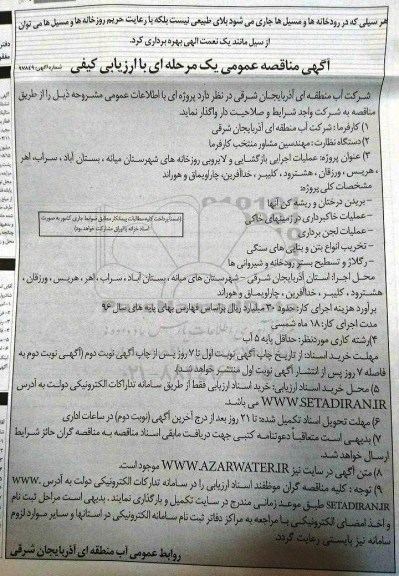 هر سیلی که در رودخانه ها و مسیل ها جاری می شود بلای طبیعی نیست بلکه با رعایت حریم روزخانه ها و مسیل ها می توان
از سیل مانند یک نعمت الهی بهره برداری کرد.
آگهی مناقصه عمومی یک مرحله ای با ارزیابی کیفی
شماره آگهی: ۹۷۸۴۹
شرکت آب منطقه ای آذربایجان شرقی در نظر دارد پروژه ای با اطلاعات عمومی مشروحه ذیل را از طریق
مناقصه به شرکت واجد شرایط و صلاحیت دار واگذار نماید.
۱) کارفرما: شرکت آب منطقه ای آذربایجان شرقی
۲) دستگاه نظارت: مهندسین مشاور منتخب کارفرما
۳) عنوان پروژه: عملیات اجرایی بازگشایی و لایروبی روزخانه های شهرستان میانه، بستان آباد، سراب، اهر
، هریس، ورزقان، هشترود، کلیبر، خداآفرین، چاراویماق و هوراند
مشخصات کلی پروژه:
- بریدن درختان و ریشه کن آنها
- عملیات خاکبرداری در زمینهای خاکی
- عملیات لجن برداری
- تخریب انواع بتن و بنایی های سنگی
- رگلاژ و تسطیح بستر رودخانه و شیروانی ها
(ضمناً پرداخت کلیه مطالبات پیمانکار مطابق ضوابط جاری کشور به صورت
اسناد خزانه (اوراق مشارکت) خواهد بود)
محل اجرا: استان آذربایجان شرقی - شهرستان های میانه، بستان آباد، سراب، اهر، هریس، ورزقان،
هشترود، کلیبر، خداآفرین، چاراویماق و هوراند
برآورد هزینه اجرای کار: حدود ۳۰ میلیارد ریال براساس فهارس بهای پایه های سال ۹۶
مدت اجرای کار: ۱۸ ماه شمسی
۴) رشته کاری موردنظر: حداقل پایه ۵ آب
مهلت خرید اسناد: از تاریخ چاپ آگهی نوبت اول تا ۷ روز پس از چاپ آگهی نوبت دوم (آگهی نوبت دوم به
فاصله ۷ روز پس از انتشار آگهی نوبت اول منتشر خواهد شد).
۵) محل خرید اسناد ارزیابی: خرید اسناد ارزیابی فقط از طریق سامانه تدارکات الکترونیکی دولت به آدرس
WWW.SETADIRAN.IR می باشد.
۶) مهلت تحویل اسناد تکمیل شده: تا ۲۱ روز بعد از درج آخرین آگهی (نوبت دوم) در ساعات اداری
۷) بدیهی است متعاقباً دعوتنامه کتبی جهت دریافت مابقی اسناد مناقصه به مناقصه گران حائز شرایط
ارسال خواهد شد.
۸) متن آگهی در سایت نیز WWW.AZARWATER.IR موجود است.
۹) توجه: کلیه مناقصه گران موظفند اسناد ارزیابی را در سامانه تدارکات الکترونیکی دولت به آدرس WWW.
SETADIRAN.IR طبق موعد زمانی مندرج در سایت تکمیل و بارگذاری نمایند. بدیهی است مراحل ثبت نام
و اخذ امضای الکترونیکی با مراجعه به مراکز دفاتر ثبت نام سامانه الکترونیکی در استانها و سایر موارد لزوم
سامانه نیز بایستی رعایت گردد.
روابط عمومی آب منطقه ای آذربایجان شرقی